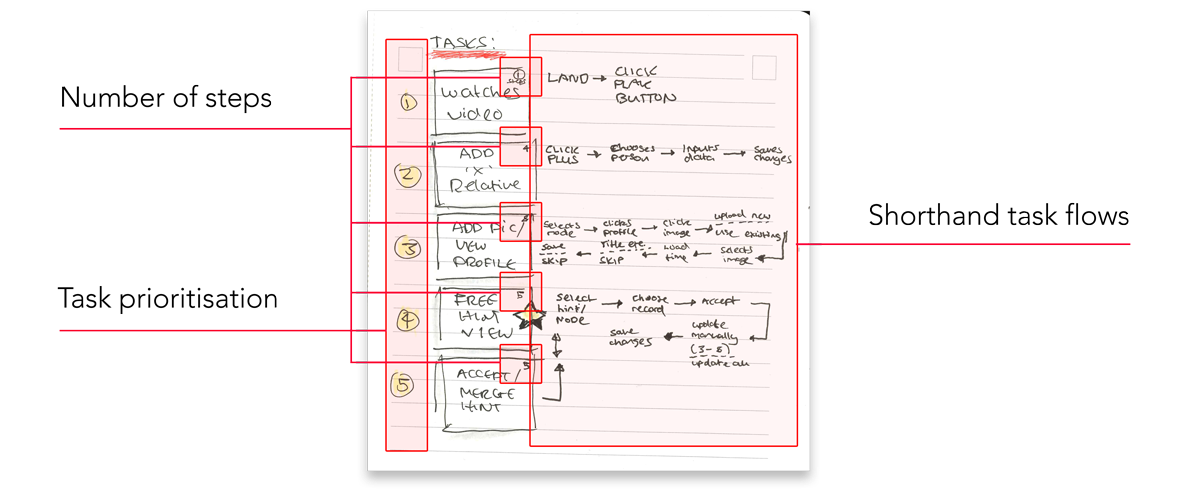 Number of steps
Task prioritisation
Shorthand task flows
TASKS:
1
watches
video
LAND → CLICK
PLAY
BUTTON
2
4
ADD
'X'
Relative
CLICK
PLUS → Chooses
person → Inputs
data → Saves
changes
3
ADD Pic/
VIEW
PROFILE
Selects
node → clicks
profile → click
image → upload new
use existing
selects
image
load
time
Title etc.
SKIP
save
SKIP
4
5
FREE
HINT
VIEW
select
hint/
NODE → choose
record → Accept
update
manually
(3-5)
update all
save
changes
5
5
ACCEPT/
MERGE
HINT